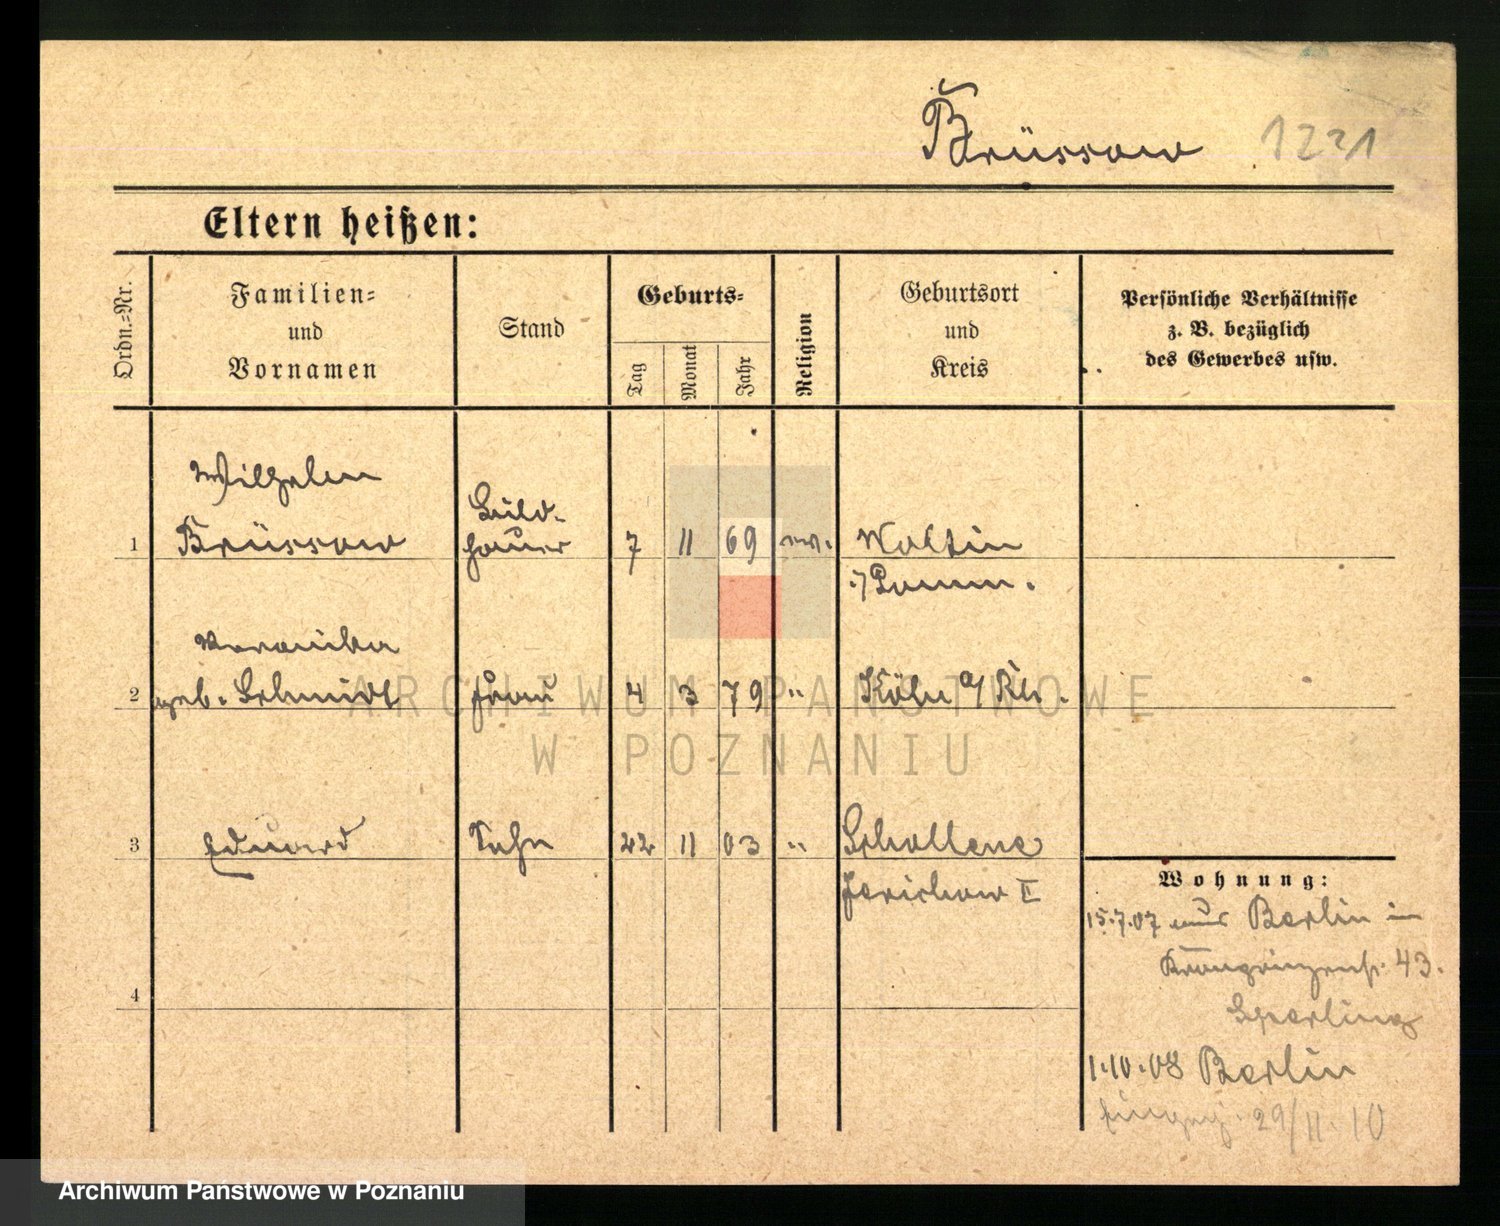 Brüssow 1221
Eltern heißen:
Ordn.-Nr.
Familien-
und
Vornamen
Stand
Geburts-
Tag
Monat
Jahr
Religion
Geburtsort
und
Kreis
Persönliche Verhältnisse
z. B. bezüglich
des Gewerbes usw.
Wilhelm
Bild-
1 Brüssow hauer 7 11 69 ev. Woltin
i/Pomm.
Veronika
2 geb. Schmidt Frau 4 3 79 " Köln a/Rh.
3 Eduard Sohn 22 11 03 " Schollene
Jerichow II
4
Wohnung:
15.7.07 aus Berlin in
Kronprinzenstr. 43.
Sperling
1.10.08 Berlin
29/11.10
ARCHIWUM PAŃSTWOWE
W POZNANIU
Archiwum Państwowe w Poznaniu